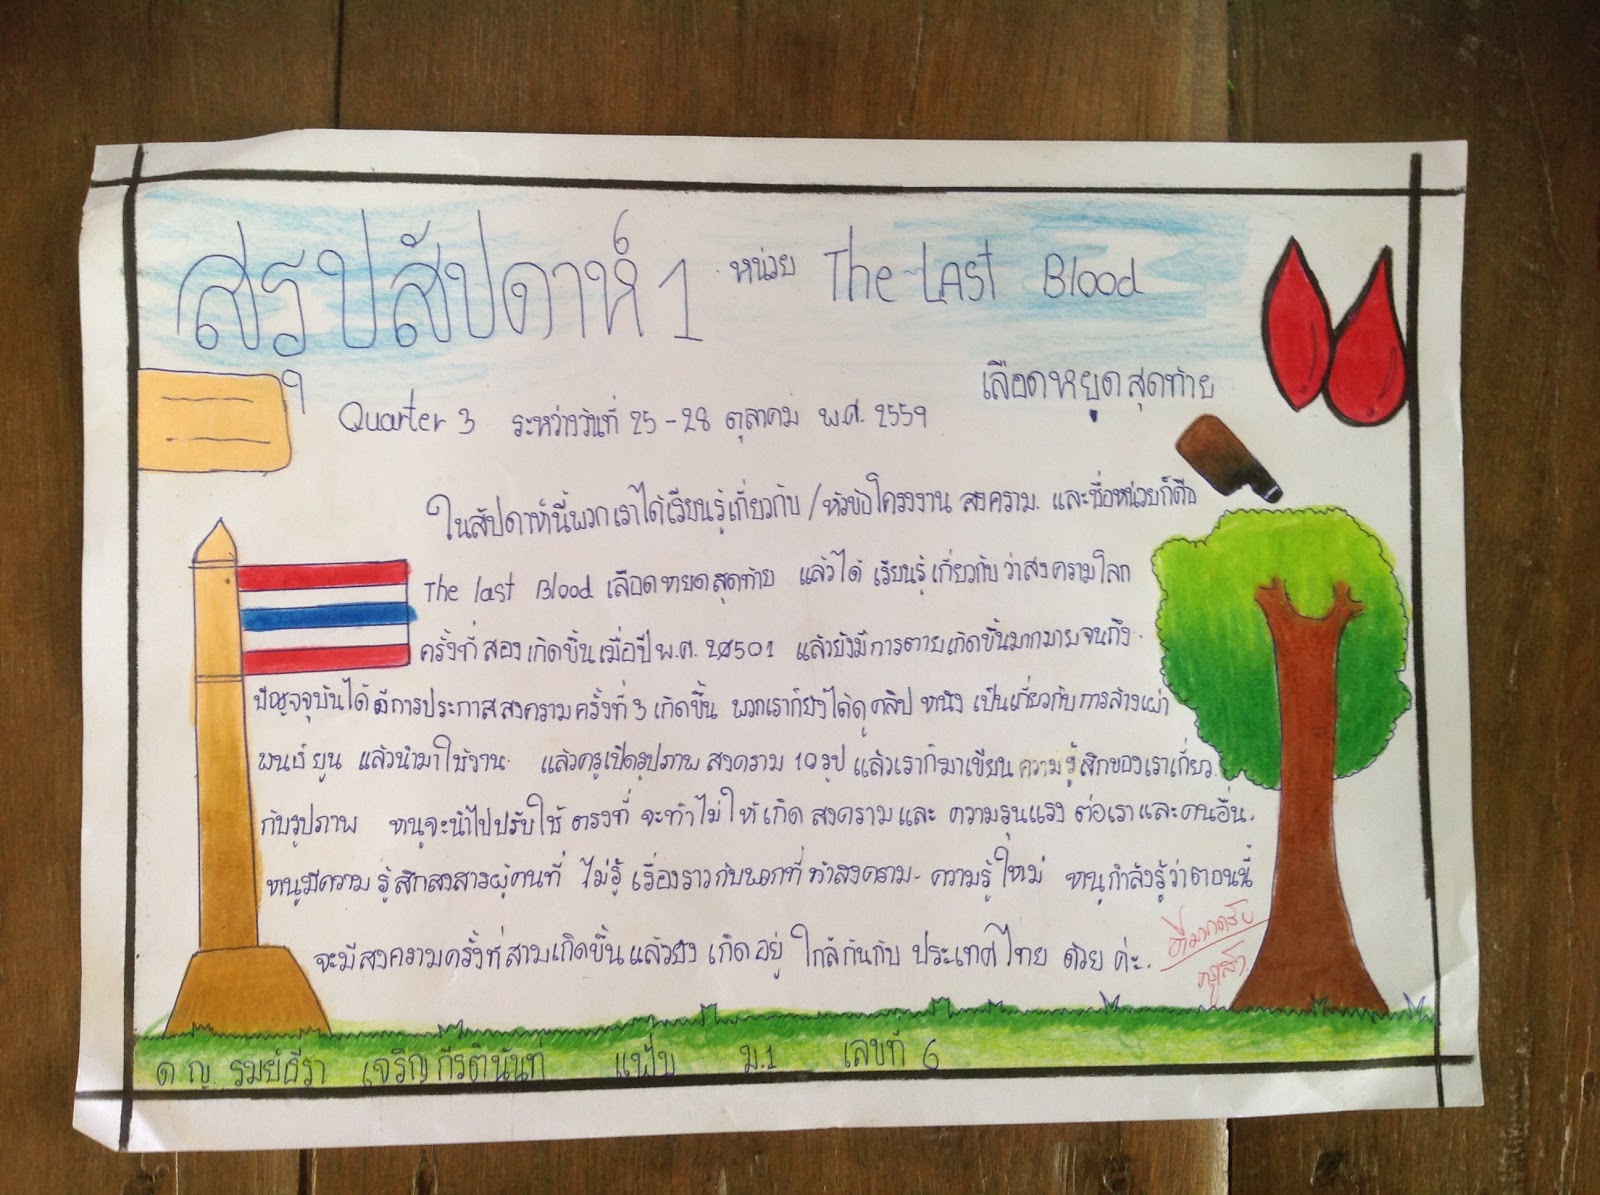 สรุปสัปดาห์ 1 หน่วย The LAST Blood
เลือดหยดสุดท้าย
Quarter 3 ระหว่างวันที่ 25 - 28 ตุลาคม พ.ศ. 2559
ในสัปดาห์นี้พวกเราได้เรียนรู้เกี่ยวกับ / หัวข้อโครงงาน สงคราม. และชื่อหน่วยก็คือ
The last Blood เลือดหยดสุดท้าย แล้วได้ เรียนรู้เกี่ยวกับ ว่าสงครามโลก
ครั้งที่สองเกิดขึ้นเมื่อปี พ.ศ. แล้วยังมีการตายเกิดขึ้นมากมายจนถึง.
ปัญจจุบันได้ มีการประกาศสงครามครั้งที่ 3 เกิดขึ้น พวกเราก็ยังได้ดูคลิป หนัง เป็นเกี่ยวกับการล้างเผ่า
พนธ์ยูน แล้วนำมาใช้งาน. แล้วครูเปิดรูปภาพ สงคราม 10 รูป แล้วเราก็มาเขียน ความรู้สึกของเราเกี่ยว.
กับรูปภาพ หนูจะนำไปปรับใช้ ตรงที่ จะทำไม่ให้เกิด สงครามและ ความรุนแรง ต่อเราและคนอื่น.
หนูมีความ รู้สึกสงสารผู้คนที่ ไม่รู้ เรื่องราวกับพวกที่ทำสงคราม. ความรู้ใหม่ หนูกำลังรู้ว่าตอนนี้
จะมีสงครามครั้งที่สามเกิดขึ้นแล้วยัง เกิดอยู่ ใกล้กันกับ ประเทศไทย ด้วย ค่ะ.
ด ญ รมย์ธีรา เจริญกีรตินันท์ แฟ้ม ม.1 เลขที่ 6